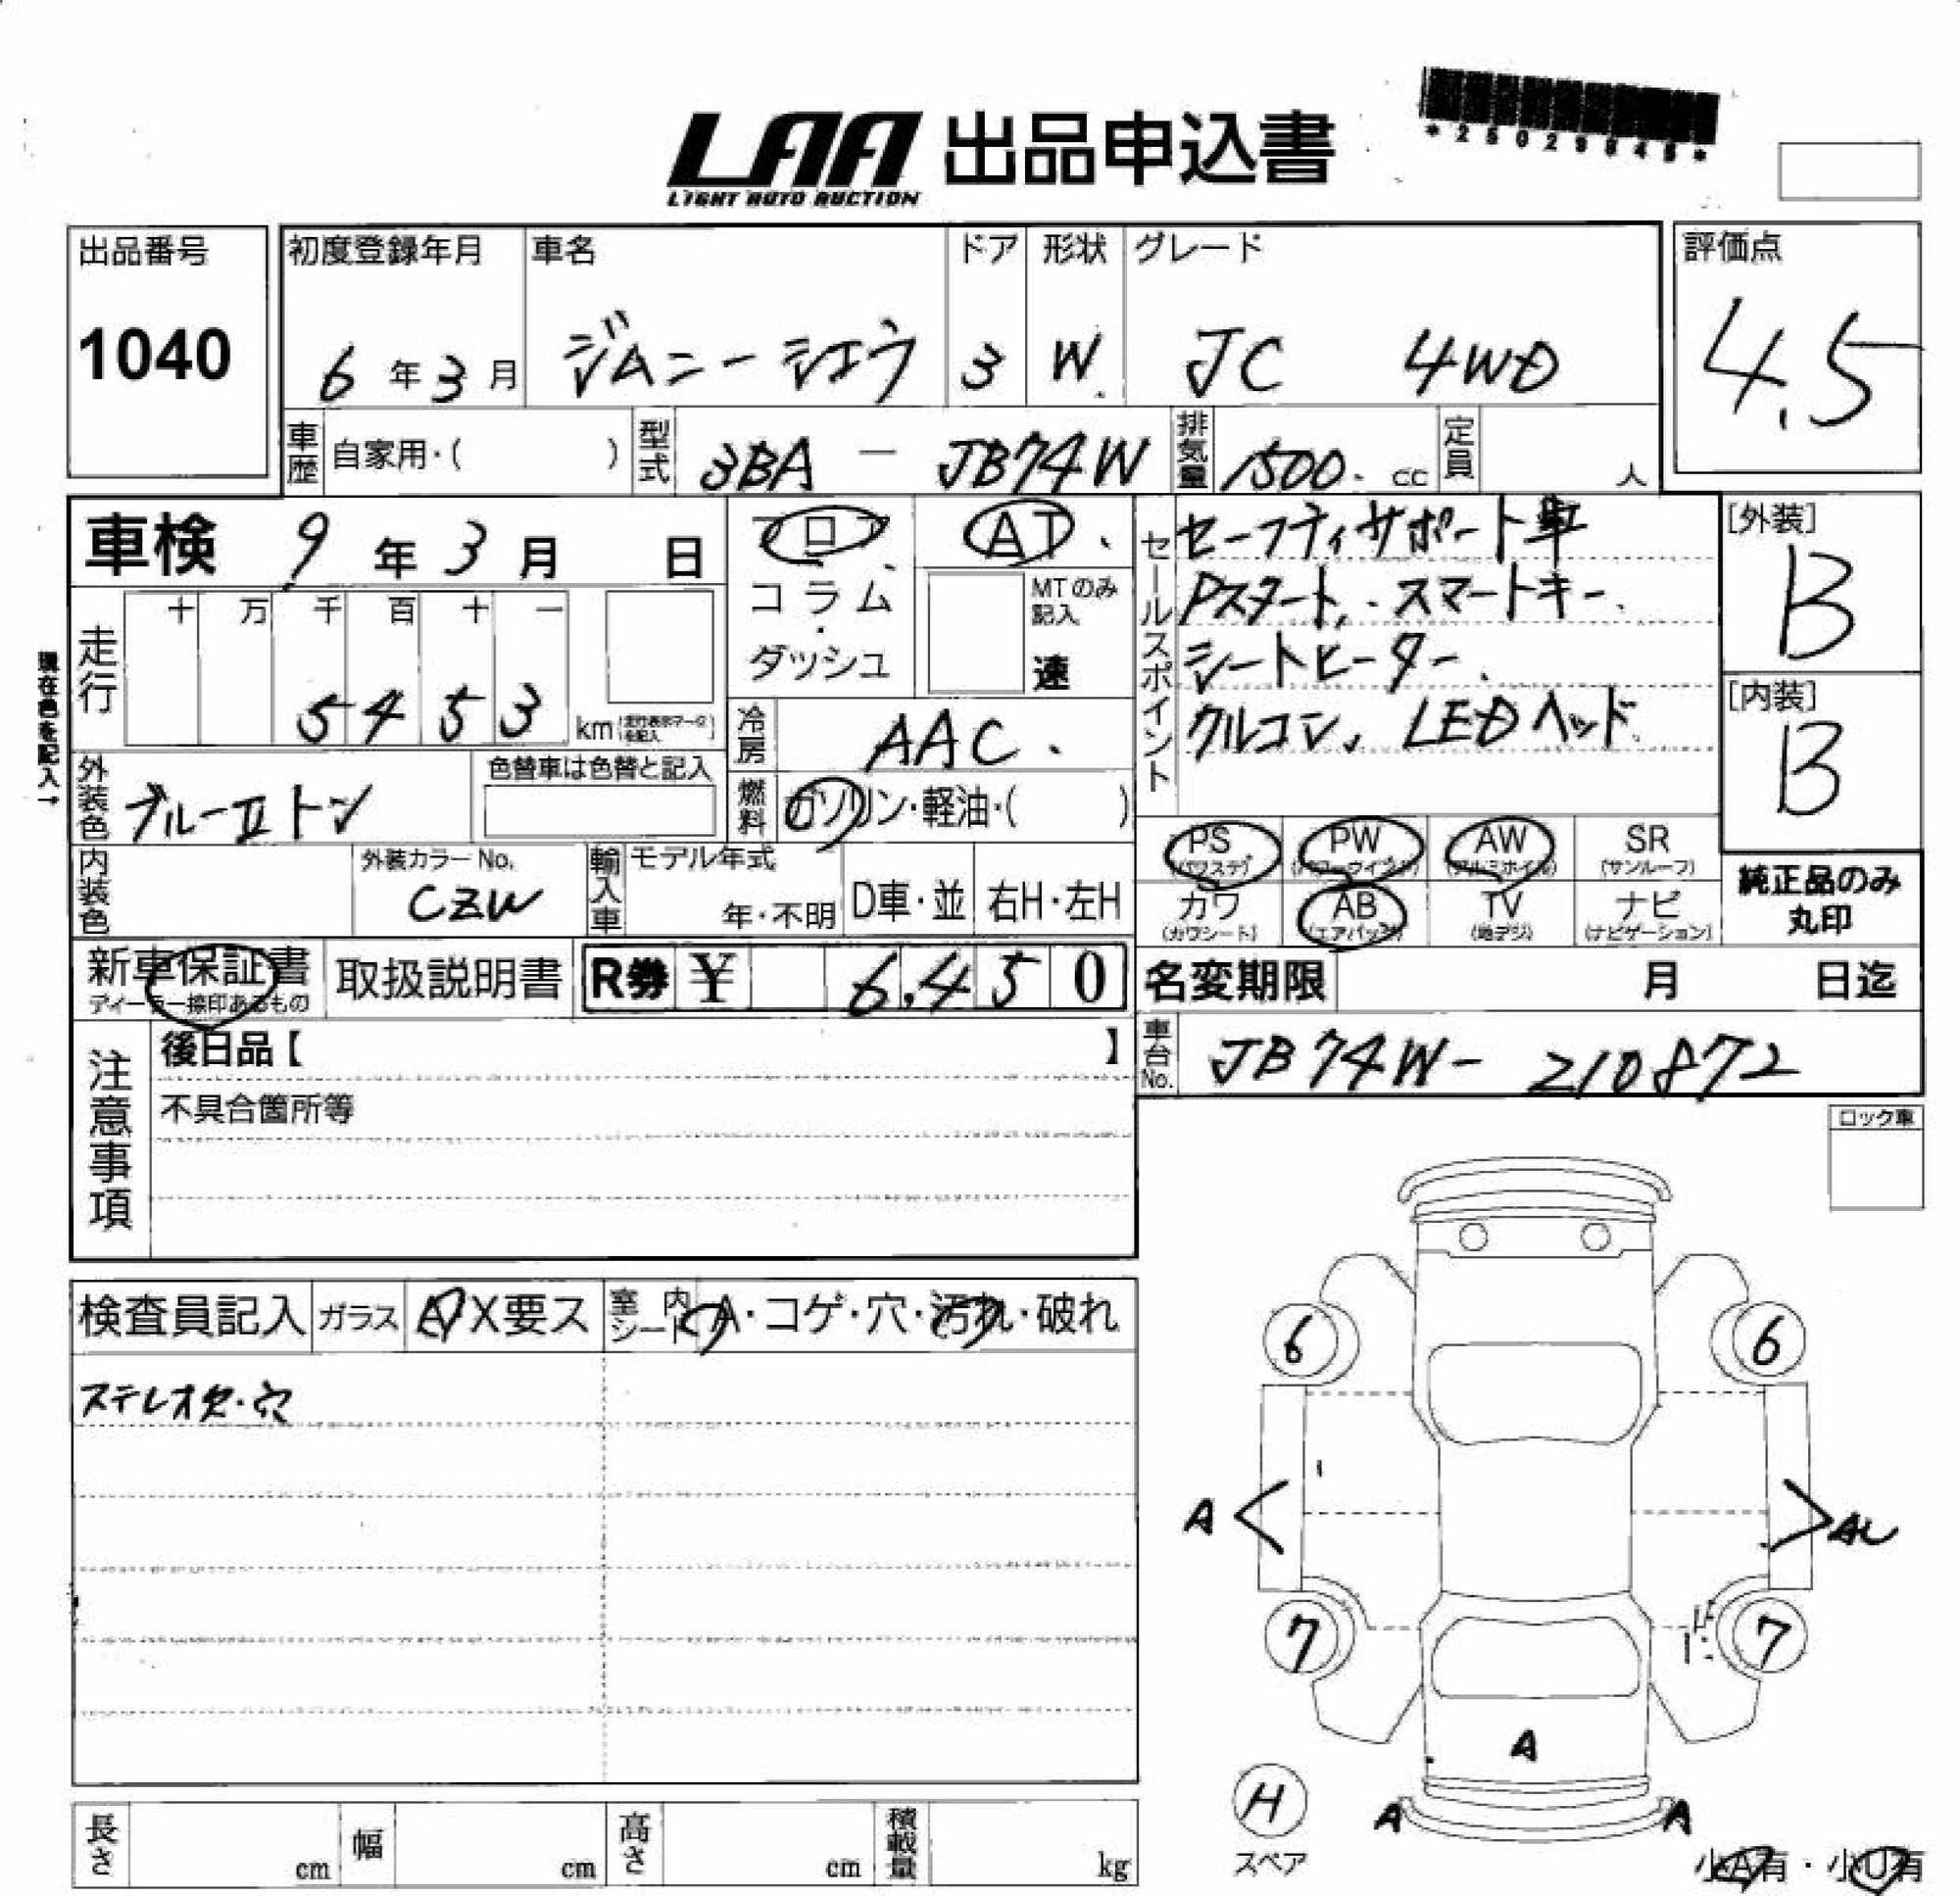 LAA 出品申込書
LIGHT AUTO AUCTION
出品番号
1040
初度登録年月
6年3月
車名
ジムニーシエラ
ドア
3
形状
W
グレード
JC 4WD
評価点
4.5
車歴
自家用・( )
型式
3BA - JB74W
排気量
1500. cc
定員
人
車検 9年3月 日
フロア
コラム・
ダッシュ
AT
MTのみ記入
速
走行
十 万 千 百 十 一
5 4 5 3 km
現在色を記入→
外装色
ブルーⅡトン
色替車は色替と記入
冷房
AAC.
燃料
ガソリン・軽油・( )
内装色
外装カラーNo.
CZW
輸入車
モデル年式
年・不明
D車・並
右H・左H
新車保証書
ディーラー捺印あるもの
取扱説明書
R券 ¥ 6,450
セールスポイント
セーフティサポート車
Pスタート、スマートキー
シートヒーター
クルコン、LEDヘッド
[外装]
B
[内装]
B
PS
(パワステ)
PW
(パワーウインド)
AW
(アルミホイル)
SR
(サンルーフ)
カワ
(カワシート)
AB
(エアバック)
TV
(地デジ)
ナビ
(ナビゲーション)
純正品のみ
丸印
名変期限 月 日迄
車台No.
JB74W- 210872
注意事項
後日品【 】
不具合箇所等
ロック車
検査員記入
ガラス
A X要ス
室内シート
A・コゲ・穴・汚れ・破れ
ステレオ欠・穴
6
6
A
AU
7
7
A
H
スペア
A
A
小A有・小U有
長さ cm
幅 cm
高さ cm
積載量 kg